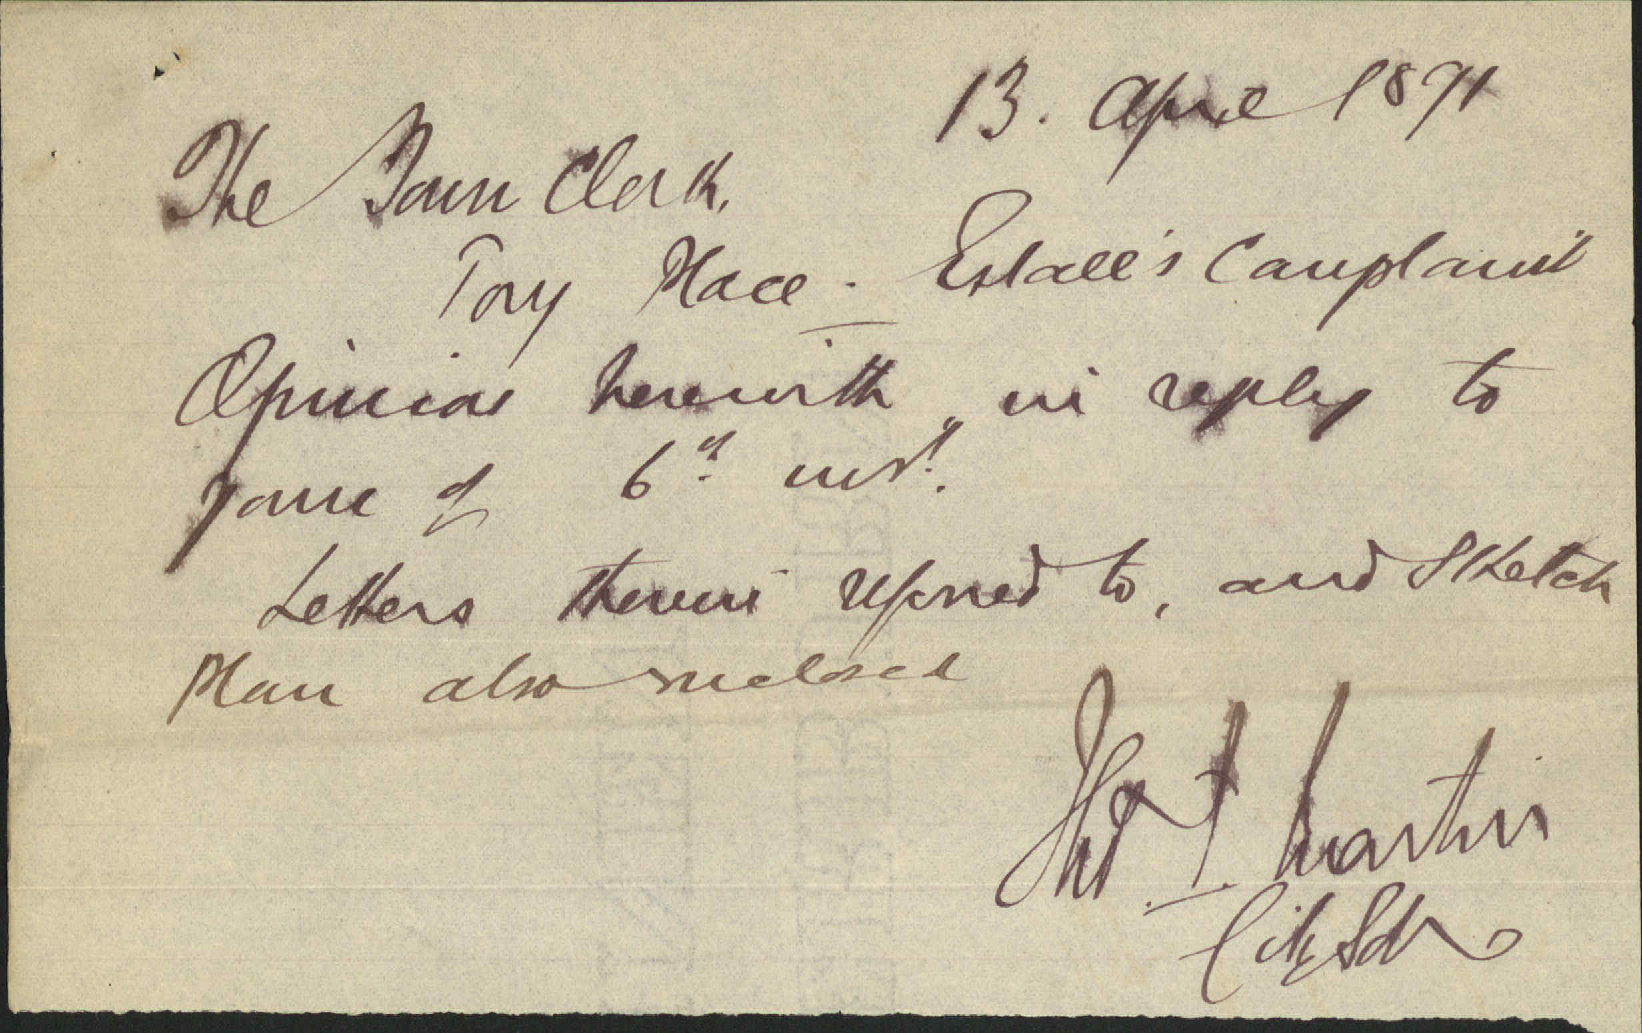 13. April 1891
The Town Clerk.
Tory Place - Estall's Complaint
Opinion herewith, in reply to
yours of 6th inst.
Letters therein referred to, and Sketch
Plan also enclosed
Thos. J. Martin
City Solr